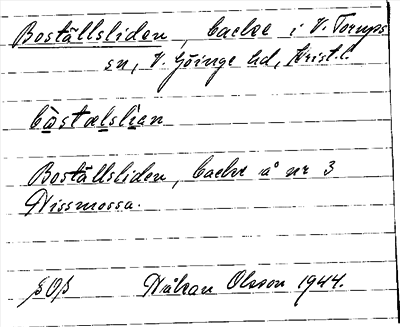 Boställsliden, backe i V. Torups
sn, V. Göinge hd, Krist. l.
bòstælslìan
Boställsliden, backe å nr 3
Nissmossa.
Håkan Olsson 1944.